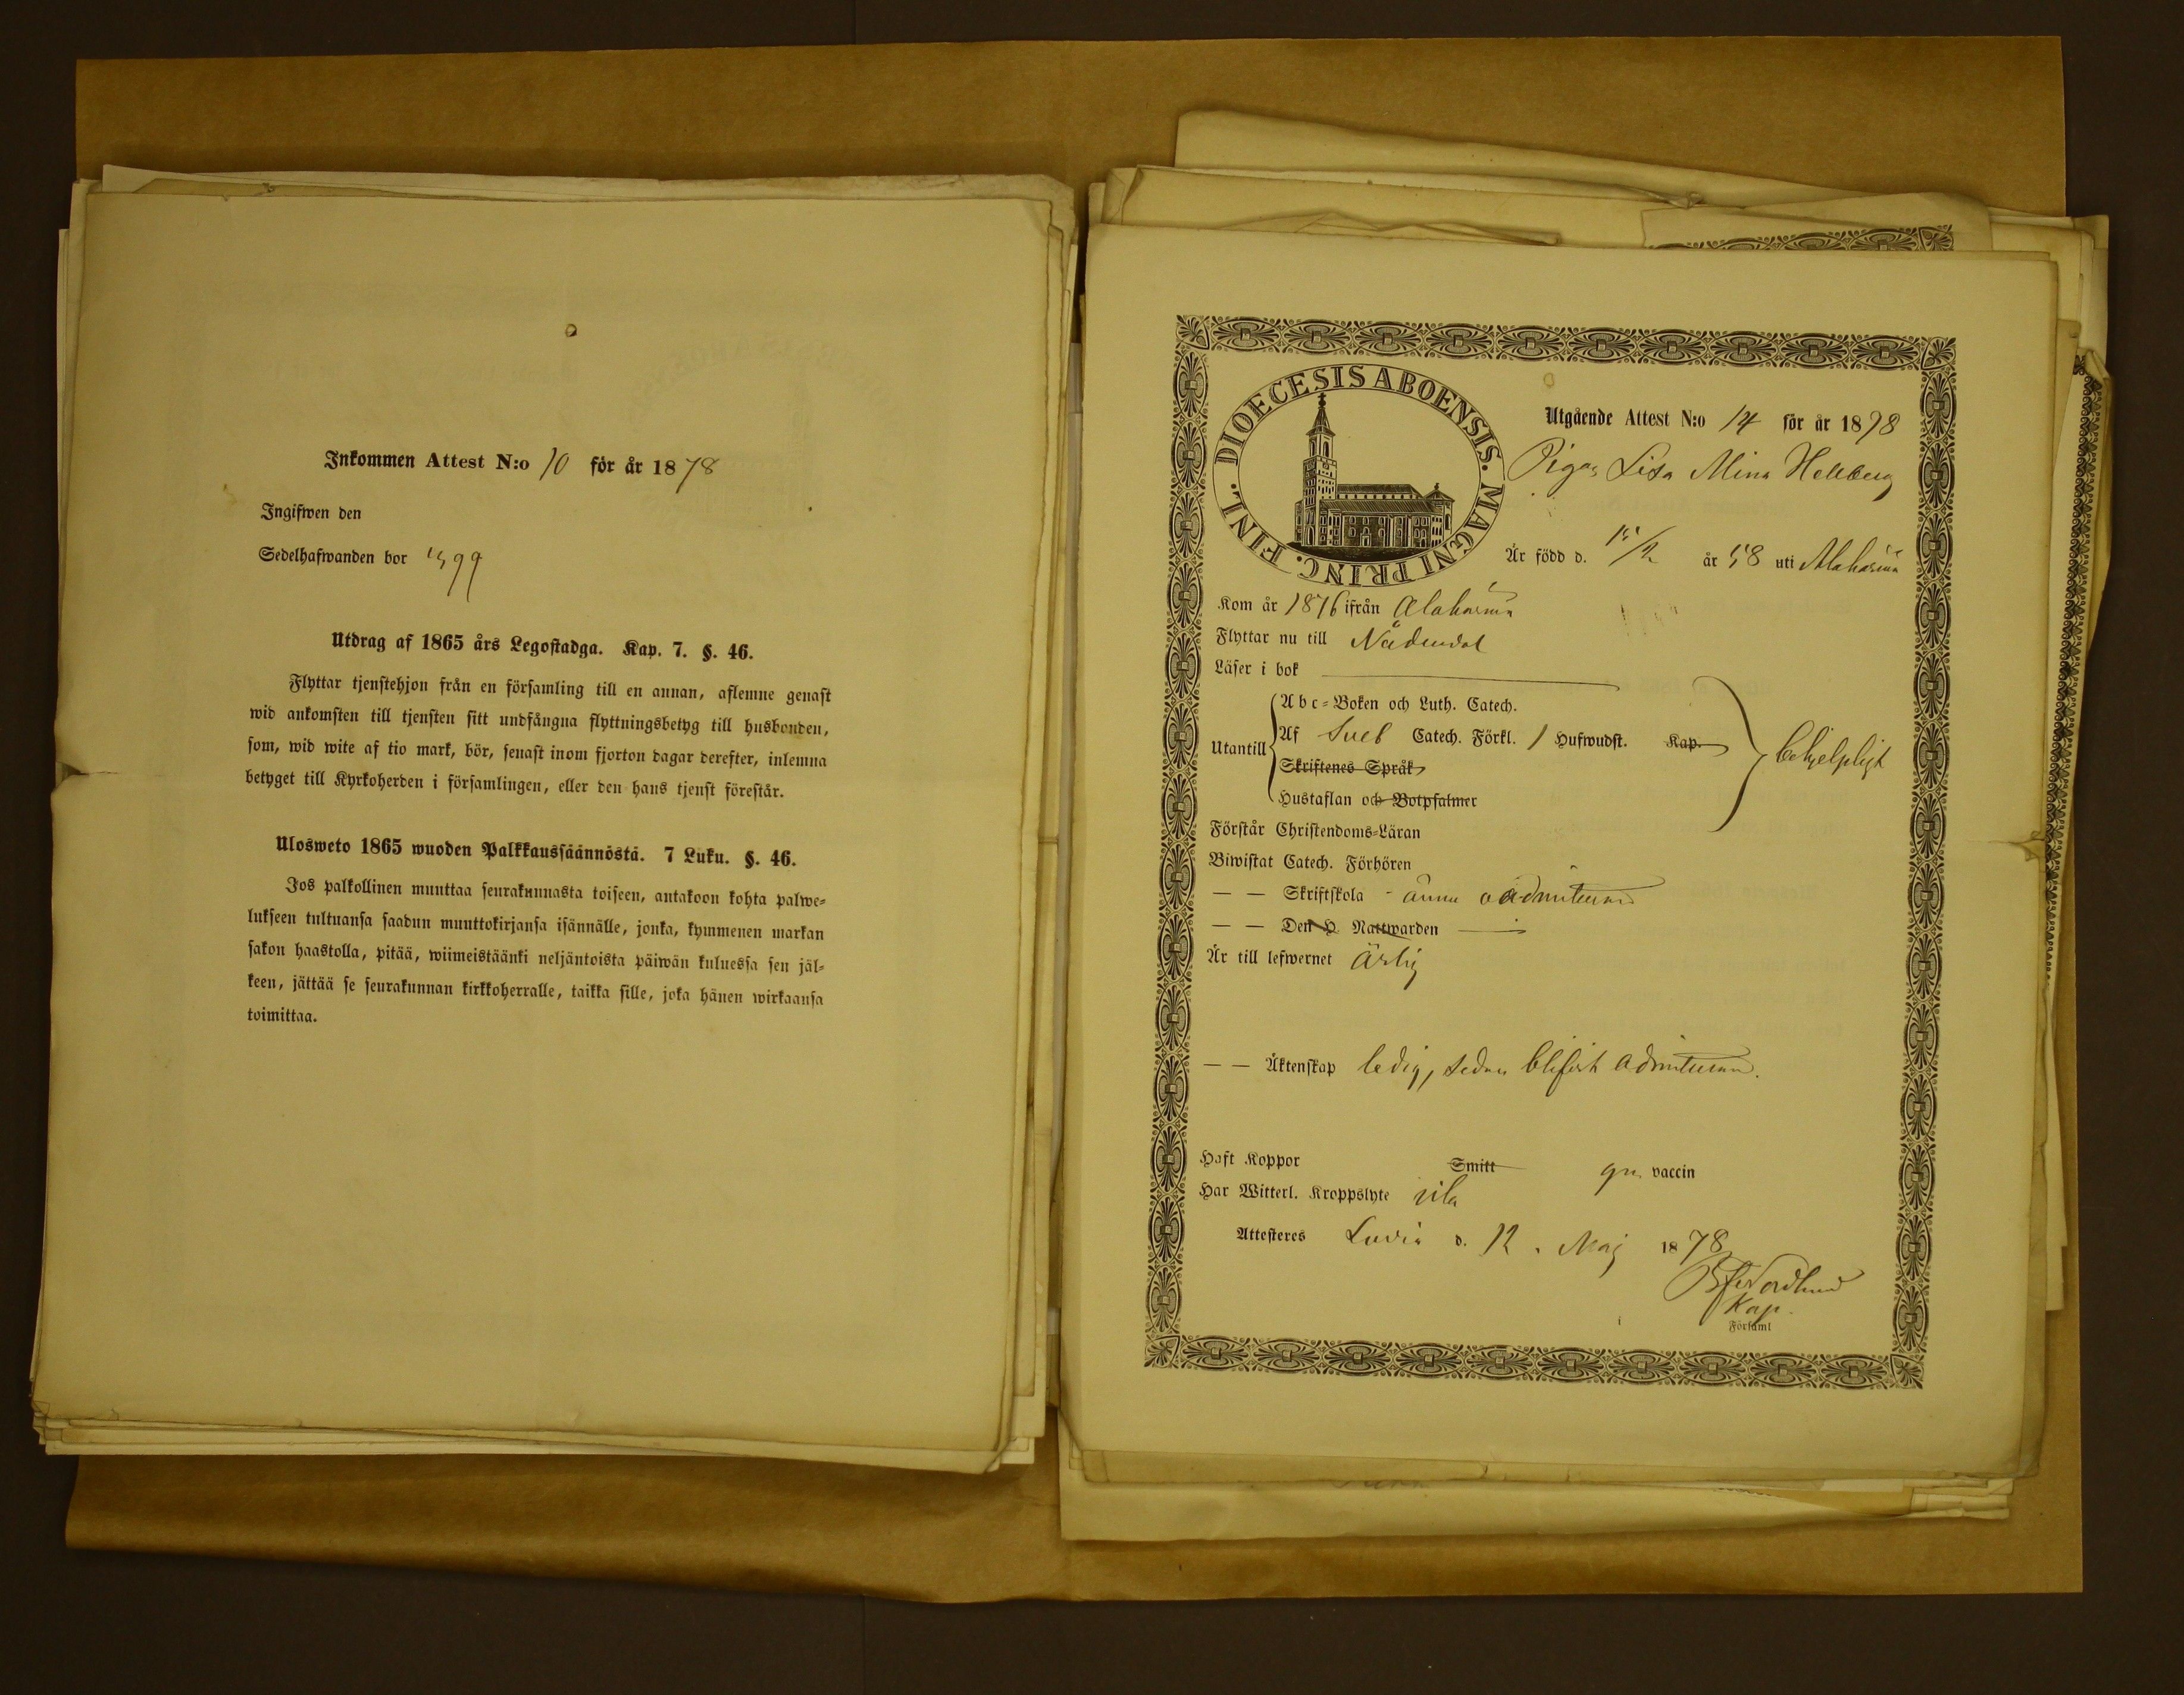 Inkommen Attest N:o 10 för år 1878
Ingifwen den
Sedelhafwanden bor
Utdrag af 1865 års Legostadga. Kap. 7. §. 46.
Flyttar tjenstehjon från en församling till en annan, aflemne genast
wid ankomsten till tjensten sitt undfångna flyttningsbetyg till husbonden,
som, wid wite af tio mark, bör, senast inom fjorton dagar derefter, inlemna
betyget till Kyrkoherden i församlingen, eller den hans tjenst förestår.
Ulosweto 1865 wuoden Palkkaussäännöstä. 7 Luku. §. 46.
Jos palkollinen muuttaa seurakunnasta toiseen, antakoon kohta palwe=
lukseen tultuansa saadun muuttokirjansa isännälle, jonka, kymmenen markan
sakon haastolla, pitää, wiimeistäänki neljäntoista päiwän kuluessa sen jäl=
keen, jättää se seurakunnan kirkkoherralle, taikka sille, joka hänen wirkaansa
toimittaa.
DIOECESIS ABOENSIS. MAGNI PRINC. FINL.
Utgående Attest N:o 14 för år 1878
Pigan Lisa Mina Hellberg
Är född d. 15/2 år 58 uti Alahärmä
Kom år 1876 ifrån Alahärmä
Flyttar nu till Nådendal
Läser i bok
Utantill
Abc=Boken och Luth. Catech.
Af Sveb Catech. Förkl. 1 Hufwudst. Kap.
Skriftenes Språk
Hustaflan och Botpsalmer
behjelpligt
Förstår Christendoms=Läran
Biwistat Catech. Förhören
— — Skriftskola ännu oadmitterad
— — Den H. Nattwarden
Är till lefwernet ärlig
— — Äktenskap ledig, sedan blifvit admitterad.
Haft Koppor Smitt gn. vaccin
Har Witterl. Kroppslyte
Attesteres Luvia d. 12. Maj 1878
Nordlund
Kap.
Församl